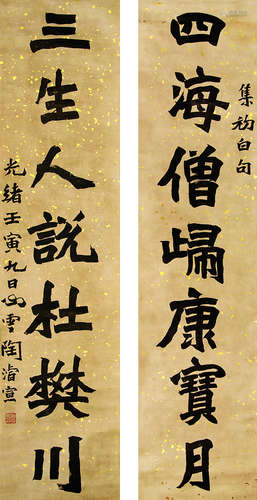 四海僧歸康寶月
集初白句
三生人説杜樊川
光緒壬寅九日心雲陶濬宣